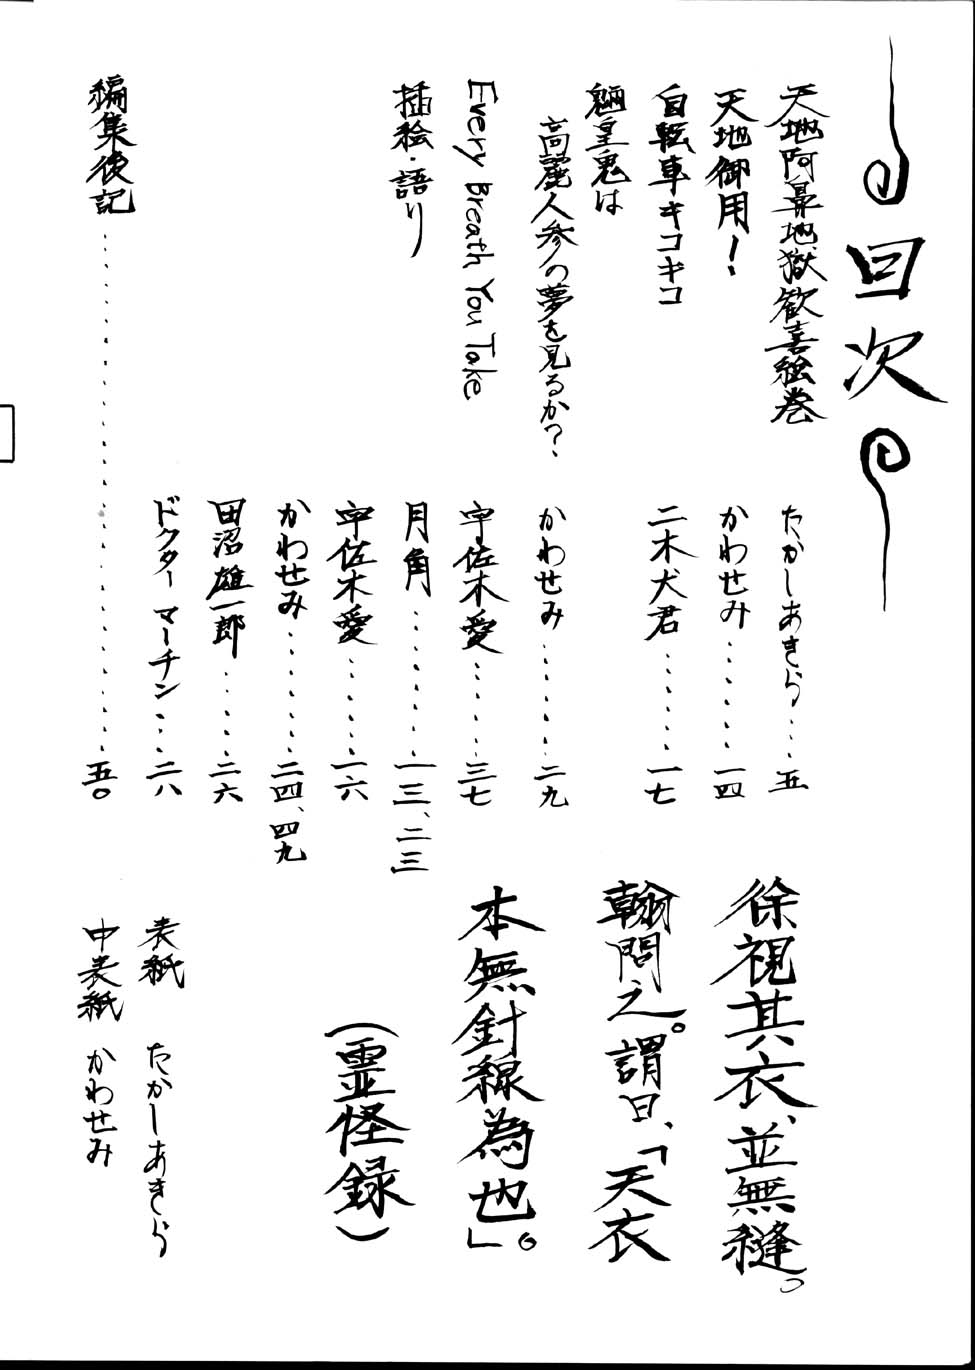 目次
天地阿鼻地獄歓喜絵巻 たかしあきら……五
天地御用！ かわせみ……一四
自転車キコキコ 二木犬君……一七
魎皇鬼は
高麗人参の夢を見るか？ かわせみ……二九
Every Breath You Take 宇佐木愛……三七
挿絵・語り 月角……一三、二三
宇佐木愛……一六
かわせみ……二四、四九
田沼雄一郎……二六
ドクターマーチン……二八
編集後記……五〇
徐視其衣、並無縫。
翰問之。謂曰、「天衣
本無針線為也」。
（霊怪録）
表紙 たかしあきら
中表紙 かわせみ